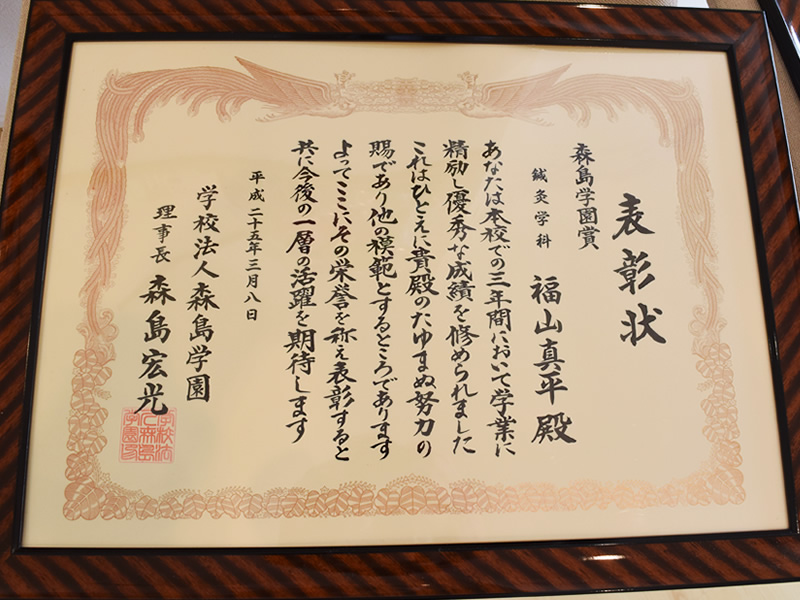 表彰状
森島学園賞
鍼灸学科
福山真平殿
あなたは本校での三年間において学業に
精励し優秀な成績を修められました
これはひとえに貴殿のたゆまぬ努力の
賜であり他の模範とするところであります
よってここにその栄誉を称え表彰すると
共に今後の一層の活躍を期待します
平成二十五年三月八日
学校法人森島学園
理事長 森島宏光